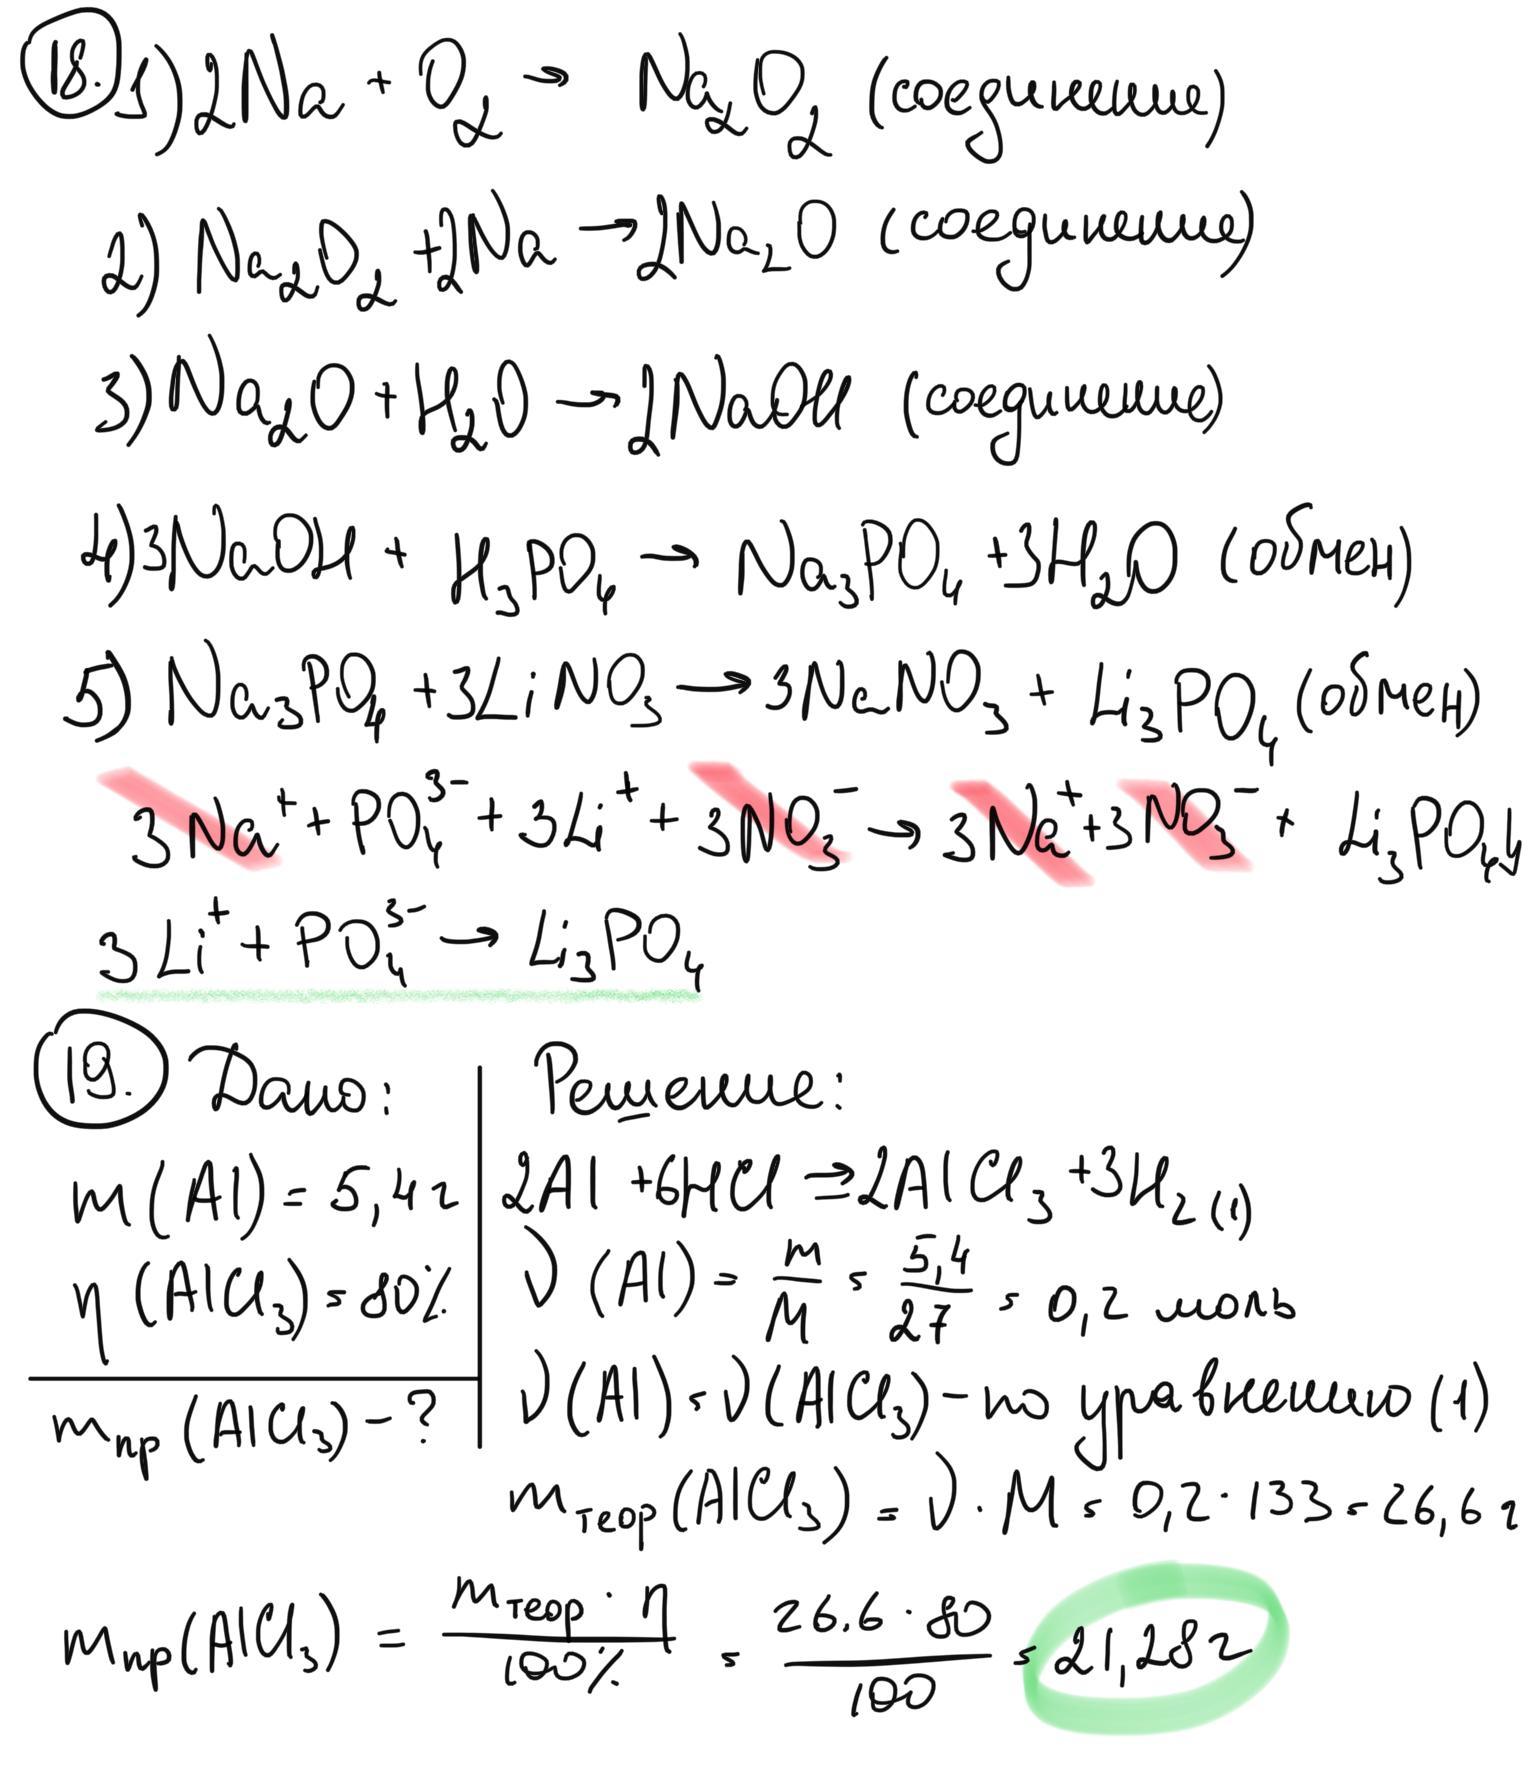 18. 1) 2Na + O₂ → Na₂O₂ (соединение)
2) Na₂O₂ + 2Na → 2Na₂O (соединение)
3) Na₂O + H₂O → 2NaOH (соединение)
4) 3NaOH + H₃PO₄ → Na₃PO₄ + 3H₂O (обмен)
5) Na₃PO₄ + 3LiNO₃ → 3NaNO₃ + Li₃PO₄ (обмен)
3Na⁺ + PO₄³⁻ + 3Li⁺ + 3NO₃⁻ → 3Na⁺ + 3NO₃⁻ + Li₃PO₄↓
3Li⁺ + PO₄³⁻ → Li₃PO₄
19. Дано:
m(Al) = 5,4 г
η(AlCl₃) = 80%
mпр(AlCl₃) - ?
Решение:
2Al + 6HCl ⇒ 2AlCl₃ + 3H₂ (1)
ν(Al) = m/M = 5,4/27 = 0,2 моль
ν(Al) = ν(AlCl₃) - по уравнению (1)
mтеор(AlCl₃) = ν · M = 0,2 · 133 = 26,6 г
mпр(AlCl₃) = mтеор · η / 100% = 26.6 · 80 / 100 = 21,28 г